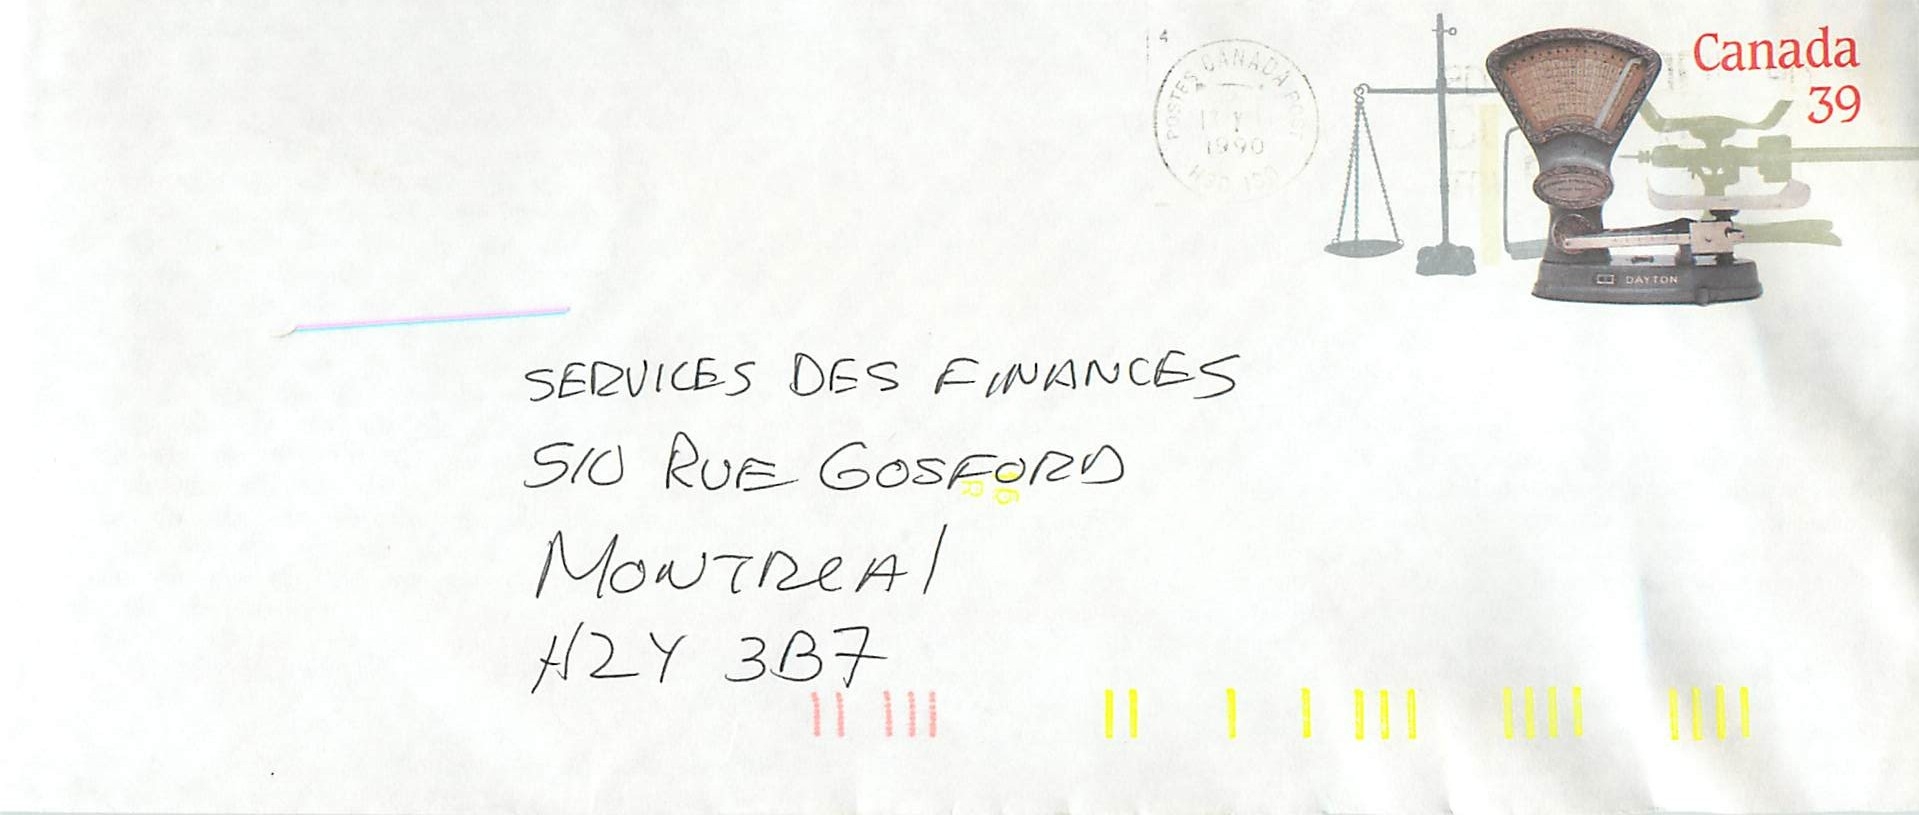 4
POSTES CANADA POST
1990
Canada
39
DAYTON
SERVICES DES FINANCES
510 RUE GOSFORD
MONTREAl
H2Y 3B7